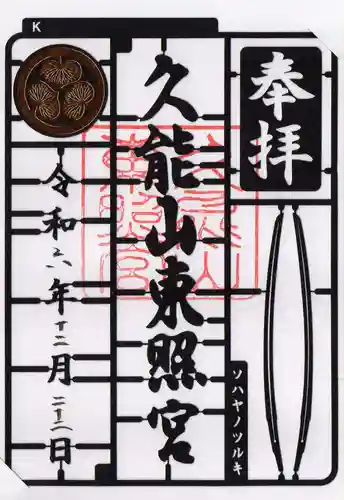 K
奉拝
久能山東照宮
ソハヤノツルキ
令和六年十二月二十二日